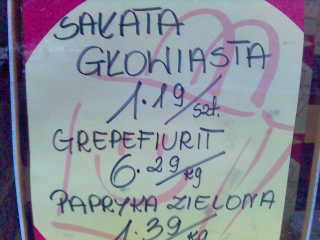 SAŁATA
GŁOWIASTA
1.19/szt.
GREPEFIURIT
6.29/kg
PAPRYKA ZIELONA
1.39/kg